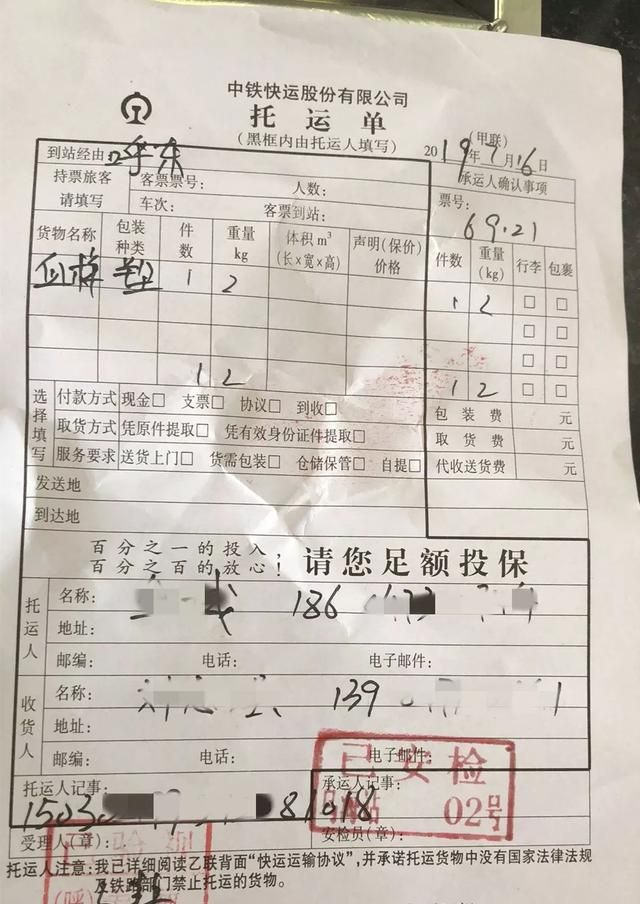 中铁快运股份有限公司
托运单
(黑框内由托运人填写)
(甲联)
2019年7月16日
到站经由 呼东
承运人确认事项
持票旅客
请填写
客票票号: 人数:
车次: 客票到站:
票号:
69.21
货物名称 包装种类 件数 重量kg 体积m³(长×宽×高) 声明(保价)价格 件数 重量(kg) 行李 包裹
塑 1 2
1 2 □ □
□ □
□ □
1 2 1 2 □ □
选择填写
付款方式 现金□ 支票□ 协议□ 到收□
包装费 元
取货方式 凭原件提取□ 凭有效身份证件提取□
取货费 元
服务要求 送货上门□ 货需包装□ 仓储保管□ 自提□
代收送货费 元
发送地
到达地
百分之一的投入,
百分之百的放心!
请您足额投保
托运人
名称: 186
地址:
邮编: 电话: 电子邮件:
收货人
名称: 139 1
地址:
邮编: 电话: 电子邮件:
已安检
02号
托运人记事: 承运人记事:
1503 81018
受理人(章): 安检员(章):
托运人注意:我已详细阅读乙联背面“快运运输协议”,并承诺托运货物中没有国家法律法规
及铁路部门禁止托运的货物。
(呼)